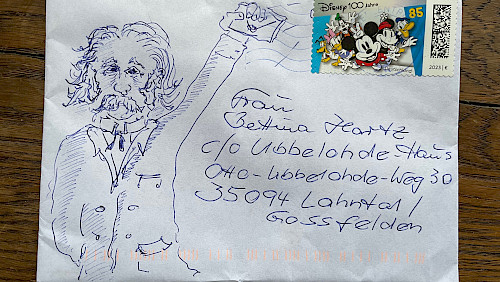 DISNEY 100 Jahre
85
2023 | €
Frau
Bettina Hartz
c/o Ubbelohde-Haus
Otto-Ubbelohde-Weg 30
35094 Lahntal /
Gossfelden